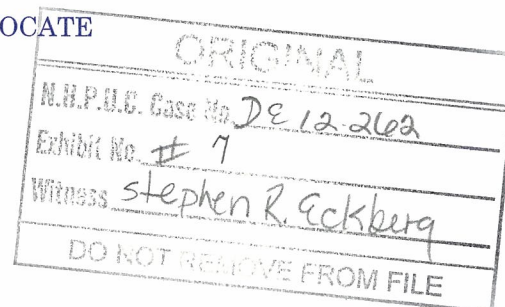 OCATE
ORIGINAL
N.H.P.U.C. Case No. DE 12-262
Exhibit No. # 7
Witness Stephen R. Eckberg
DO NOT REMOVE FROM FILE